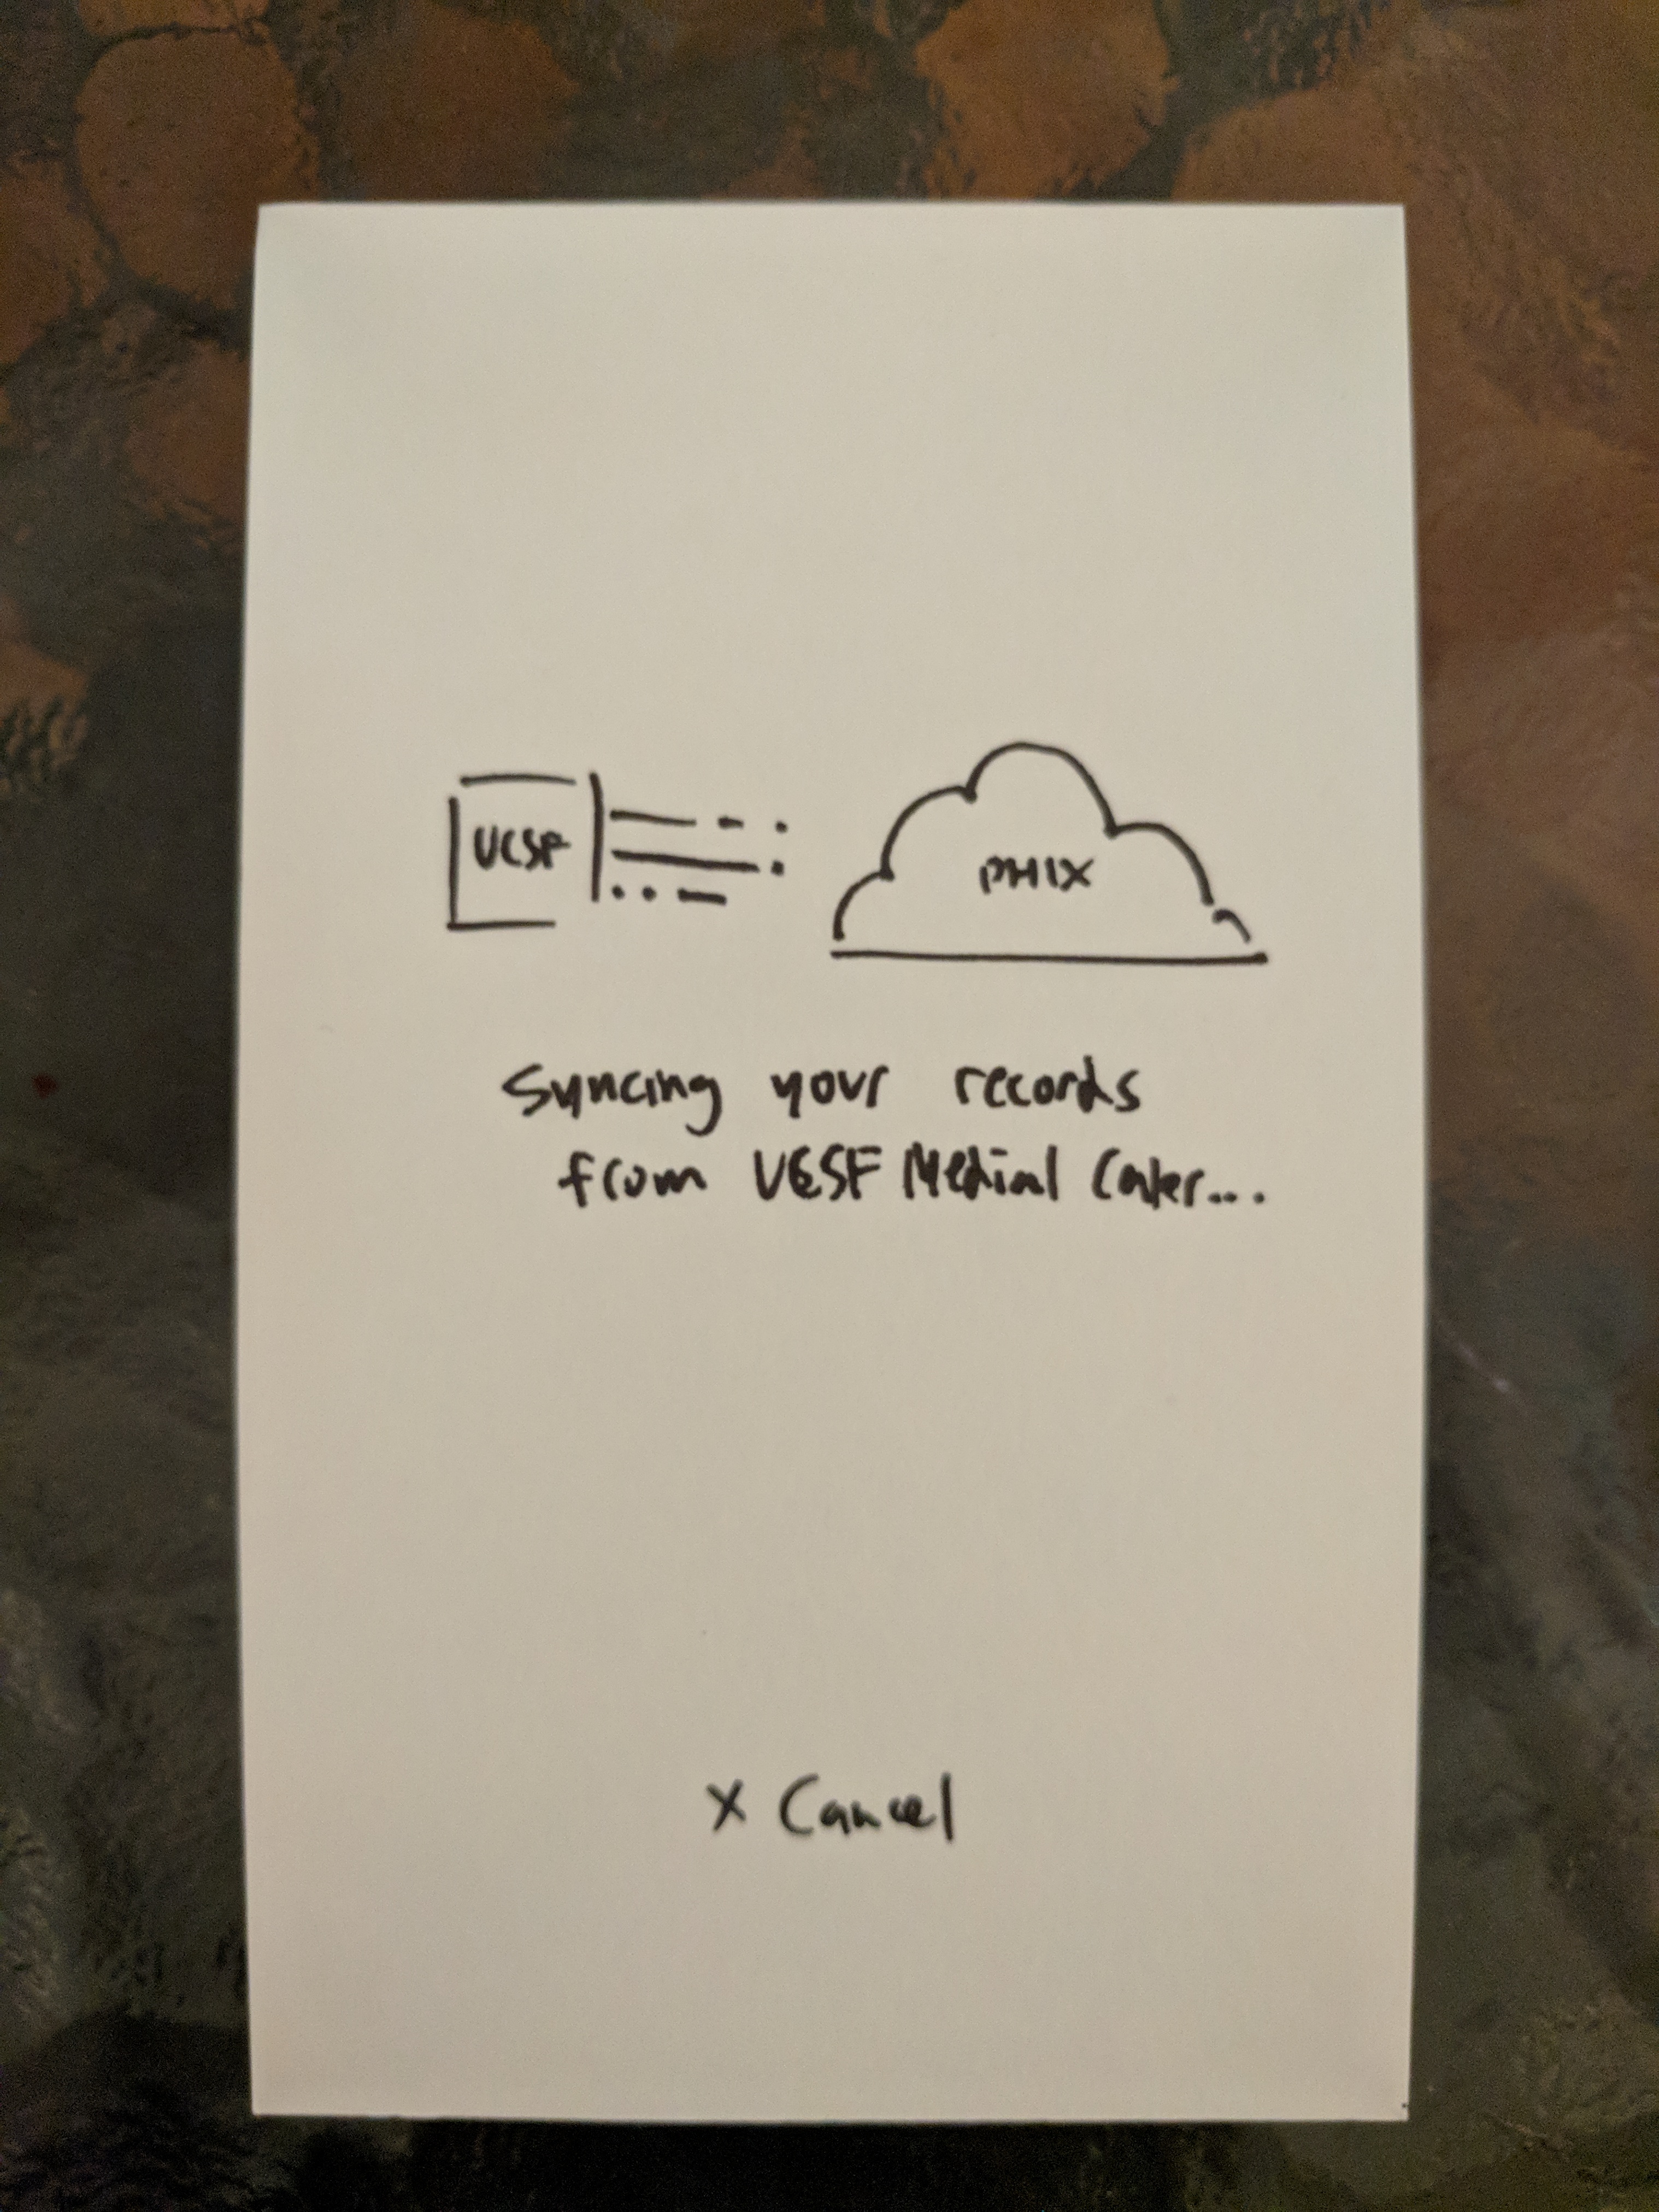 UCSF
PHIX
Syncing your records
from UCSF Medical Center...
X Cancel